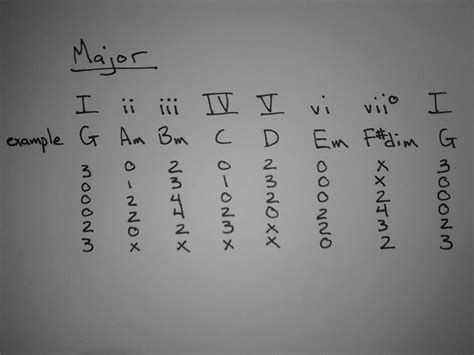 Major
I ii iii IV V vi vii° I
example G Am Bm C D Em F#dim G
3 0 2 0 2 0 x 3
0 1 3 1 3 0 x 0
0 2 4 0 2 0 2 0
0 2 4 2 0 2 4 0
2 0 2 3 x 2 3 2
3 x x x x 0 2 3